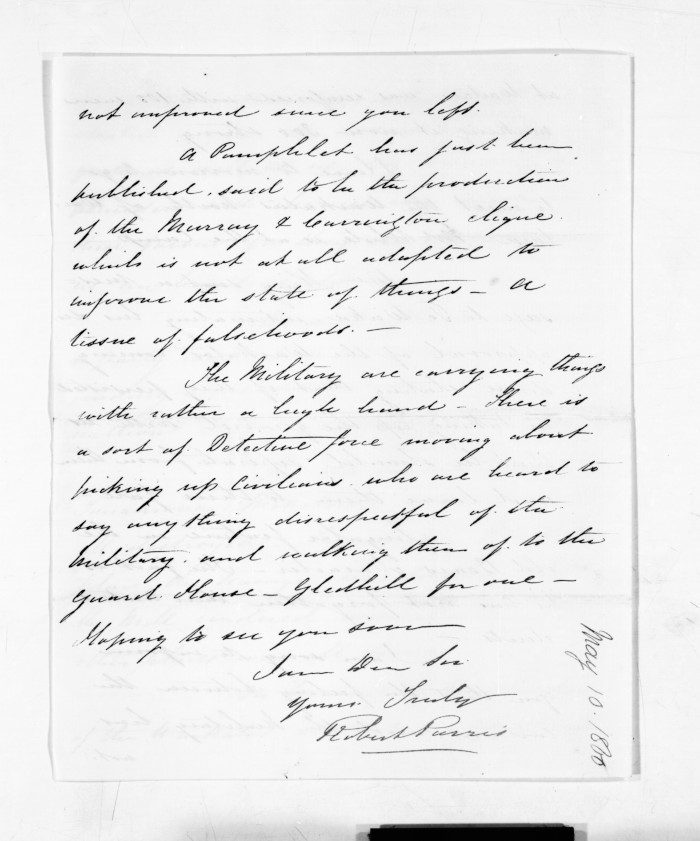 not improved since you left.
A Pamphlet has just been
published, said to be the production
of the Murray & Carrington clique.
which is not at all adapted to
improve the state of things – A
tissue of falsehoods. –
The Military are carrying things
with rather a high hand – There is
a sort of Detective force moving about
picking up Civilians who are heard to
say anything disrespectful of the
Military. and walking them of to the
Guard House – Gledhill for one –
Hoping to see you soon
I am Dear Sir
Yours Truly
Robert Parris
May 10. 1860